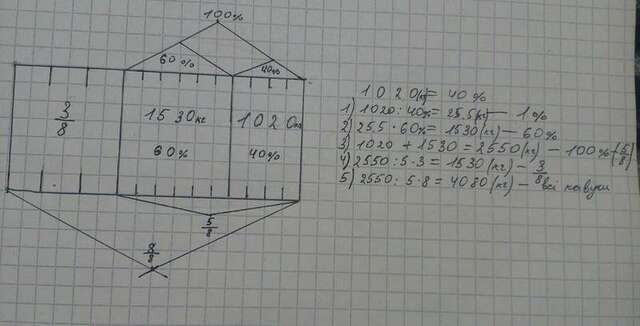 100%
60%
40%
3/8
1530кг
1020кг
60%
40%
5/8
8/8
1020(кг)= 40%
1) 1020:40%= 25,5(кг)— 1%
2) 25,5·60%= 1530(кг)— 60%
3) 1020 + 1530 = 2550(кг) — 100%(5/8)
4) 2550:5·3=1530(кг)— 3/8
5) 2550:5·8= 4080(кг)— всі кавуни